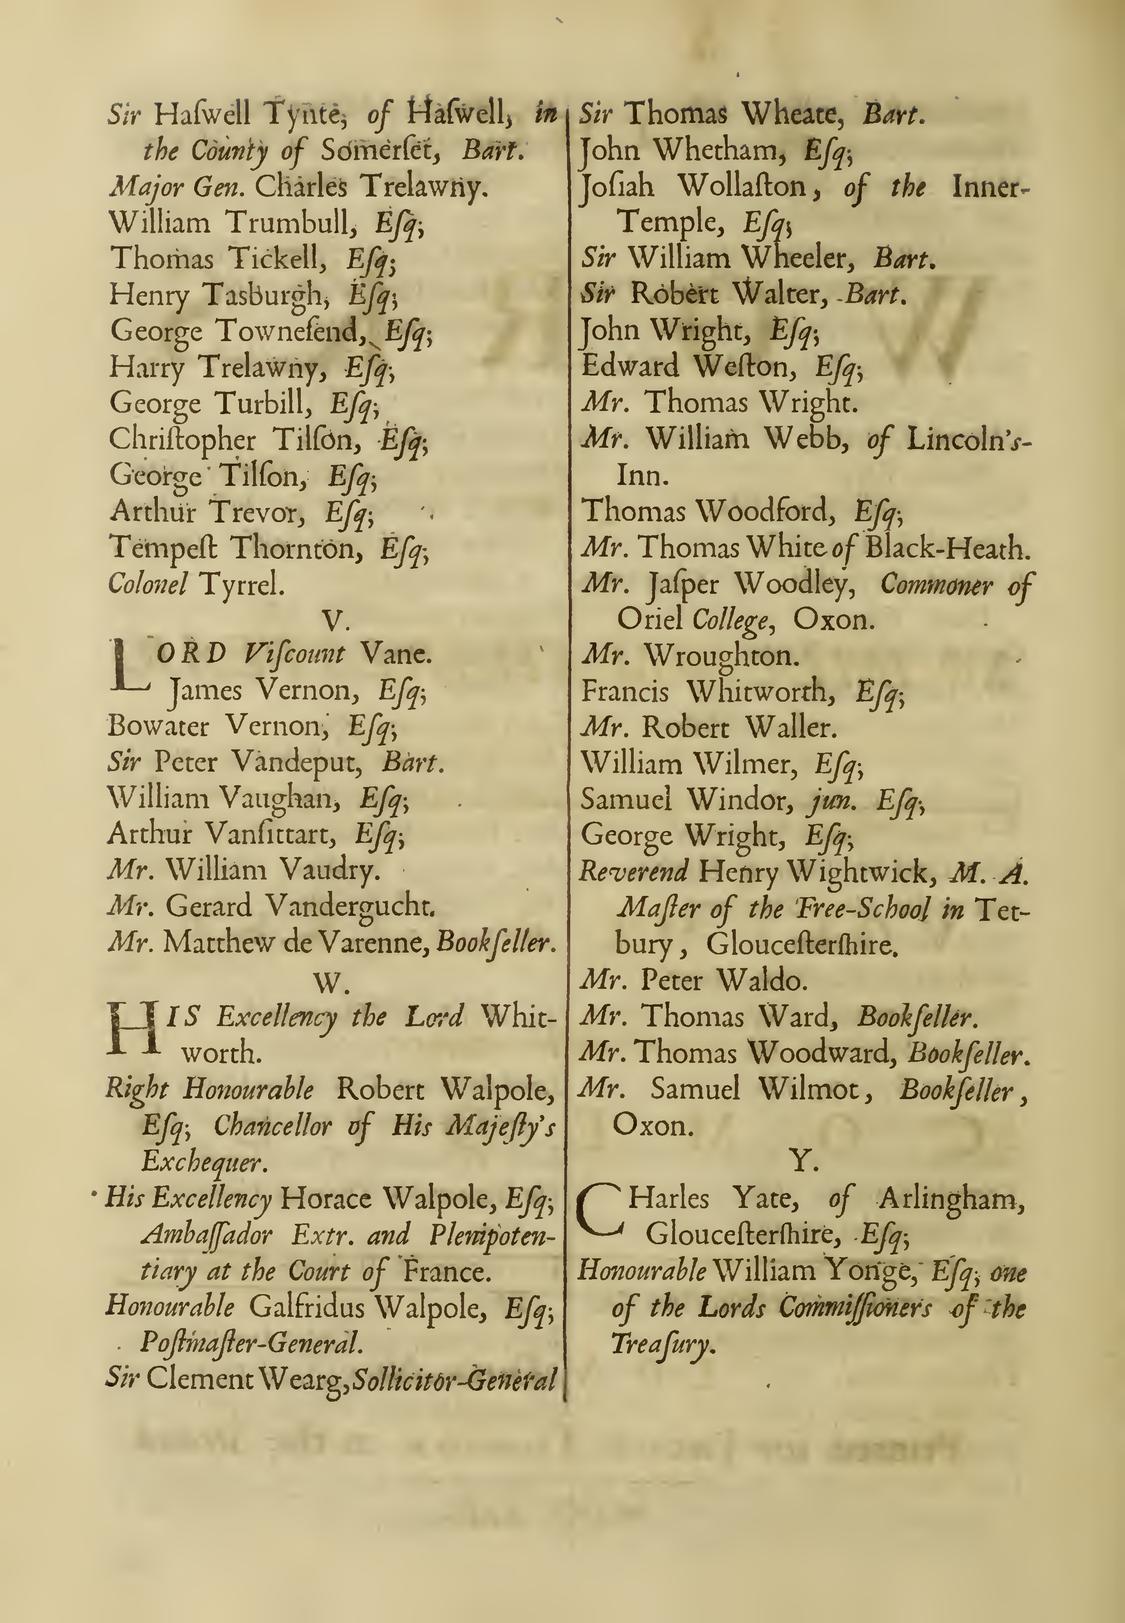 Sir Haſwell Tynte, of Haſwell, in
the County of Somerſet, Bart.
Major Gen. Charles Trelawny.
William Trumbull, Eſq;
Thomas Tickell, Eſq;
Henry Tasburgh, Eſq;
George Towneſend, Eſq;
Harry Trelawny, Eſq;
George Turbill, Eſq;
Chriſtopher Tilſon, Eſq;
George Tilſon, Eſq;
Arthur Trevor, Eſq;
Tempeſt Thornton, Eſq;
Colonel Tyrrel.
V.
LORD Viſcount Vane.
James Vernon, Eſq;
Bowater Vernon, Eſq;
Sir Peter Vandeput, Bart.
William Vaughan, Eſq;
Arthur Vanſittart, Eſq;
Mr. William Vaudry.
Mr. Gerard Vandergucht.
Mr. Matthew de Varenne, Bookſeller.
W.
HIS Excellency the Lord Whit-
worth.
Right Honourable Robert Walpole,
Eſq; Chancellor of His Majeſty's
Exchequer.
His Excellency Horace Walpole, Eſq;
Ambaſſador Extr. and Plenipoten-
tiary at the Court of France.
Honourable Galfridus Walpole, Eſq;
Poſtmaſter-General.
Sir Clement Wearg, Sollicitor-General
Sir Thomas Wheate, Bart.
John Whetham, Eſq;
Joſiah Wollaſton, of the Inner-
Temple, Eſq;
Sir William Wheeler, Bart.
Sir Robert Walter, Bart.
John Wright, Eſq;
Edward Weſton, Eſq;
Mr. Thomas Wright.
Mr. William Webb, of Lincoln's-
Inn.
Thomas Woodford, Eſq;
Mr. Thomas White of Black-Heath.
Mr. Jaſper Woodley, Commoner of
Oriel College, Oxon.
Mr. Wroughton.
Francis Whitworth, Eſq;
Mr. Robert Waller.
William Wilmer, Eſq;
Samuel Windor, jun. Eſq;
George Wright, Eſq;
Reverend Henry Wightwick, M. A.
Maſter of the Free-School in Tet-
bury, Glouceſterſhire.
Mr. Peter Waldo.
Mr. Thomas Ward, Bookſeller.
Mr. Thomas Woodward, Bookſeller.
Mr. Samuel Wilmot, Bookſeller,
Oxon.
Y.
CHarles Yate, of Arlingham,
Glouceſterſhire, Eſq;
Honourable William Yonge, Eſq; one
of the Lords Commiſſioners of the
Treaſury.